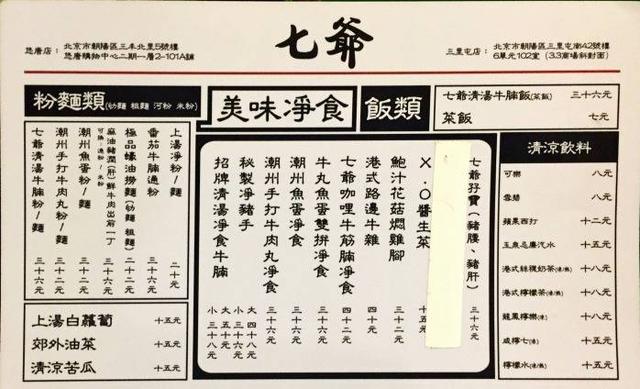 七爺
悠唐店：
北京市朝陽區三丰北里5號樓
悠唐購物中心二期一層2-101A舖
三里屯店：
北京市朝陽區三里屯街42號樓
6單元102室（3.3商場斜對面）
粉麵類（幼麵 粗麵 河粉 米粉）
上湯淨粉/麵 二十元
番茄牛腩通粉
極品蠔油撈麵（幼麵 粗麵） 二十二元
麻油豬潤（肝）鮮牛肉出前一丁
潮州魚蛋粉/麵
潮州手打牛肉丸粉/麵
七爺清湯牛腩粉/麵 三十六元
上湯白蘿蔔 十五元
郊外油菜 十五元
清涼苦瓜 十五元
美味淨食
七爺孖寶（豬腰、豬肝） 三十六元
X.O醬生菜 十五元
鮑汁花菇燜雞腳 三十二元
港式路邊牛雜
七爺咖哩牛筋腩淨食
牛丸魚蛋雙拼淨食
潮州魚蛋淨食
潮州手打牛肉丸淨食 三十六元
秘製淨豬手
招牌清湯淨食牛腩
大 四十八元
小 三十二元
大 五十五元
小 三十八元
飯類
七爺清湯牛腩飯(菜飯) 三十六元
菜飯 七元
清涼飲料
可樂 八元
雪碧 八元
蘋果西打 十二元
玉泉忌廉汽水 十五元
港式絲襪奶茶(凍/熱) 十八元
港式檸檬茶(凍/熱) 十八元
龍鳳檸樂(凍) 十八元
咸檸七(凍) 十五元
檸檬水(凍/熱) 十五元